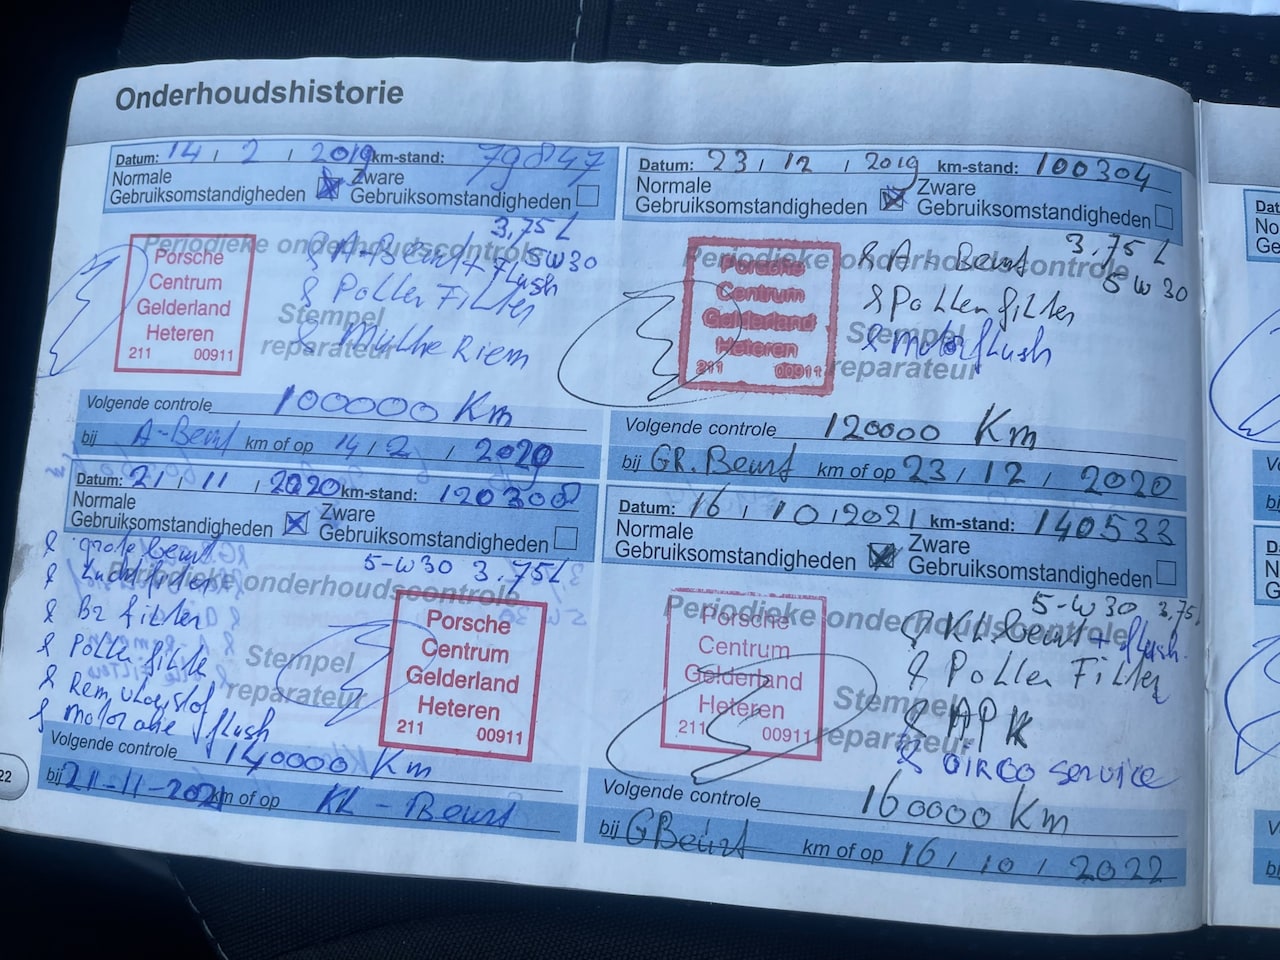 Onderhoudshistorie
Datum: 14 / 2 / 2019 km-stand: 79847
Normale Gebruiksomstandigheden Zware Gebruiksomstandigheden
3,75 L
Periodieke onderhoudscontrole
& A-Beurt + Flush 5W30
& Pollen Filter
Stempel reparateur
& Multie Riem
Porsche
Centrum
Gelderland
Heteren
211 00911
Volgende controle 100000 Km
bij A-Beurt km of op 14 / 2 / 2020
Datum: 23 / 12 / 2019 km-stand: 100304
Normale Gebruiksomstandigheden Zware Gebruiksomstandigheden
3,75 L
Periodieke onderhoudscontrole
& A-Beurt 5W30
& Pollen filter
Stempel reparateur
& motorflush
Porsche
Centrum
Gelderland
Heteren
211 00911
Volgende controle 120000 Km
bij GR. Beurt km of op 23 / 12 / 2020
Datum: 21 / 11 / 2020 km-stand: 120308
Normale Gebruiksomstandigheden Zware Gebruiksomstandigheden
& grote beurt
5-W30 3.75L
& Luchtfilter
Periodieke onderhoudscontrole
& Bz filter
& Polle filte
Stempel reparateur
& Remvloeistof
& motorolie flush
Porsche
Centrum
Gelderland
Heteren
211 00911
Volgende controle 140000 Km
bij 21-11-2021 km of op KL-Beurt
Datum: 16 / 10 / 2021 km-stand: 140533
Normale Gebruiksomstandigheden Zware Gebruiksomstandigheden
5-W30 3,75
Periodieke onderhoudscontrole
& KL beurt + flush
& Pollen Filter
Stempel reparateur
& APK
& airco service
Porsche
Centrum
Gelderland
Heteren
211 00911
Volgende controle 160000 Km
bij G Beurt km of op 16 / 10 / 2022
22